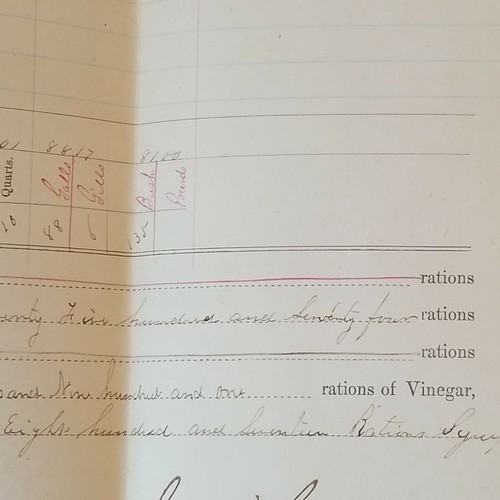 01 8817 8100
Quarts. Galls Gills Bush Pounds
10 88
rations
Five hundred and Seventy four rations
rations
and Nine hundred and one rations of Vinegar,
Eight hundred and Seventeen Rations Syrup